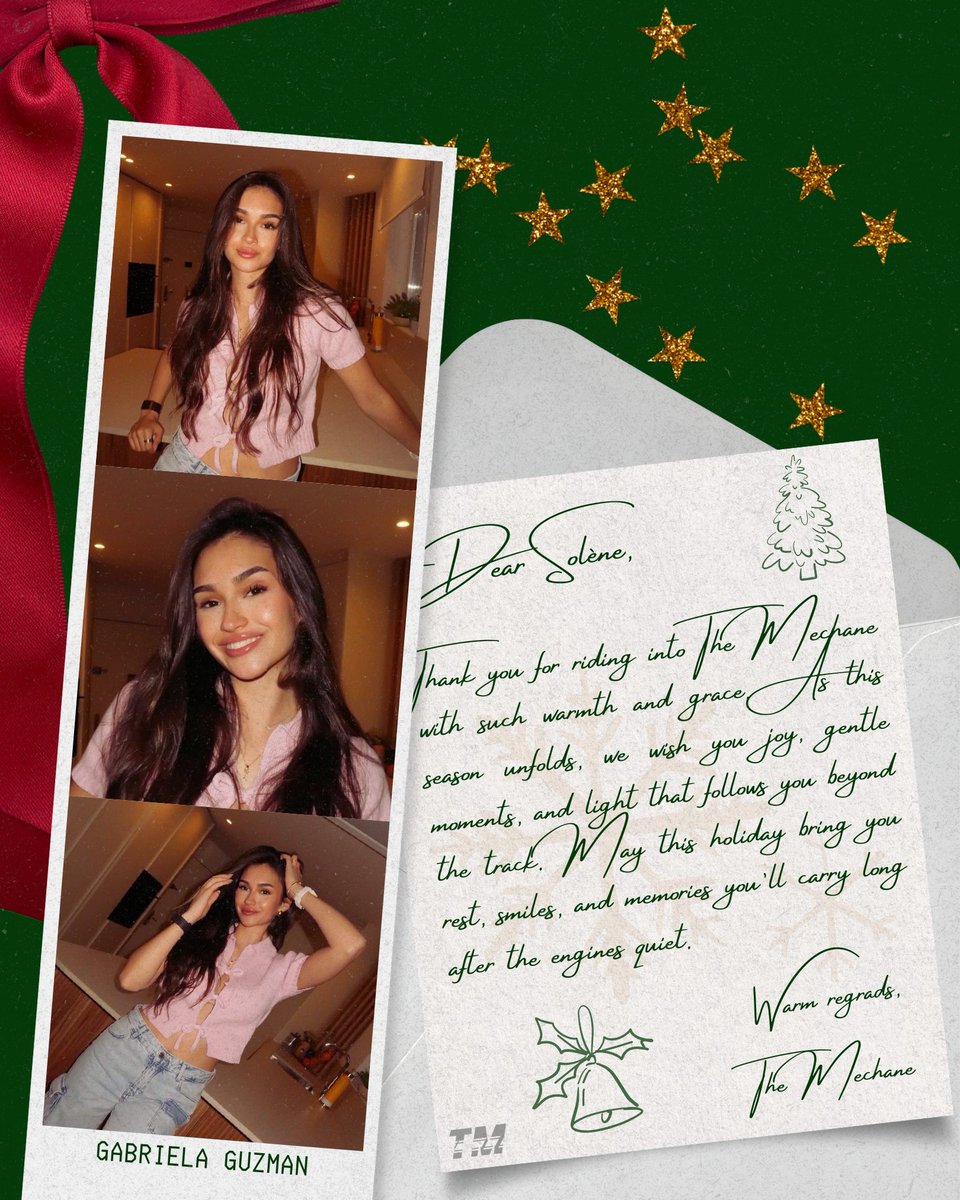 GABRIELA GUZMAN
Dear Solène,
Thank you for riding into The Mechane
with such warmth and grace As this
season unfolds, we wish you joy, gentle
moments, and light that follows you beyond
the track. May this holiday bring you
rest, smiles, and memories you'll carry long
after the engines quiet.
Warm regrads,
The Mechane
TM